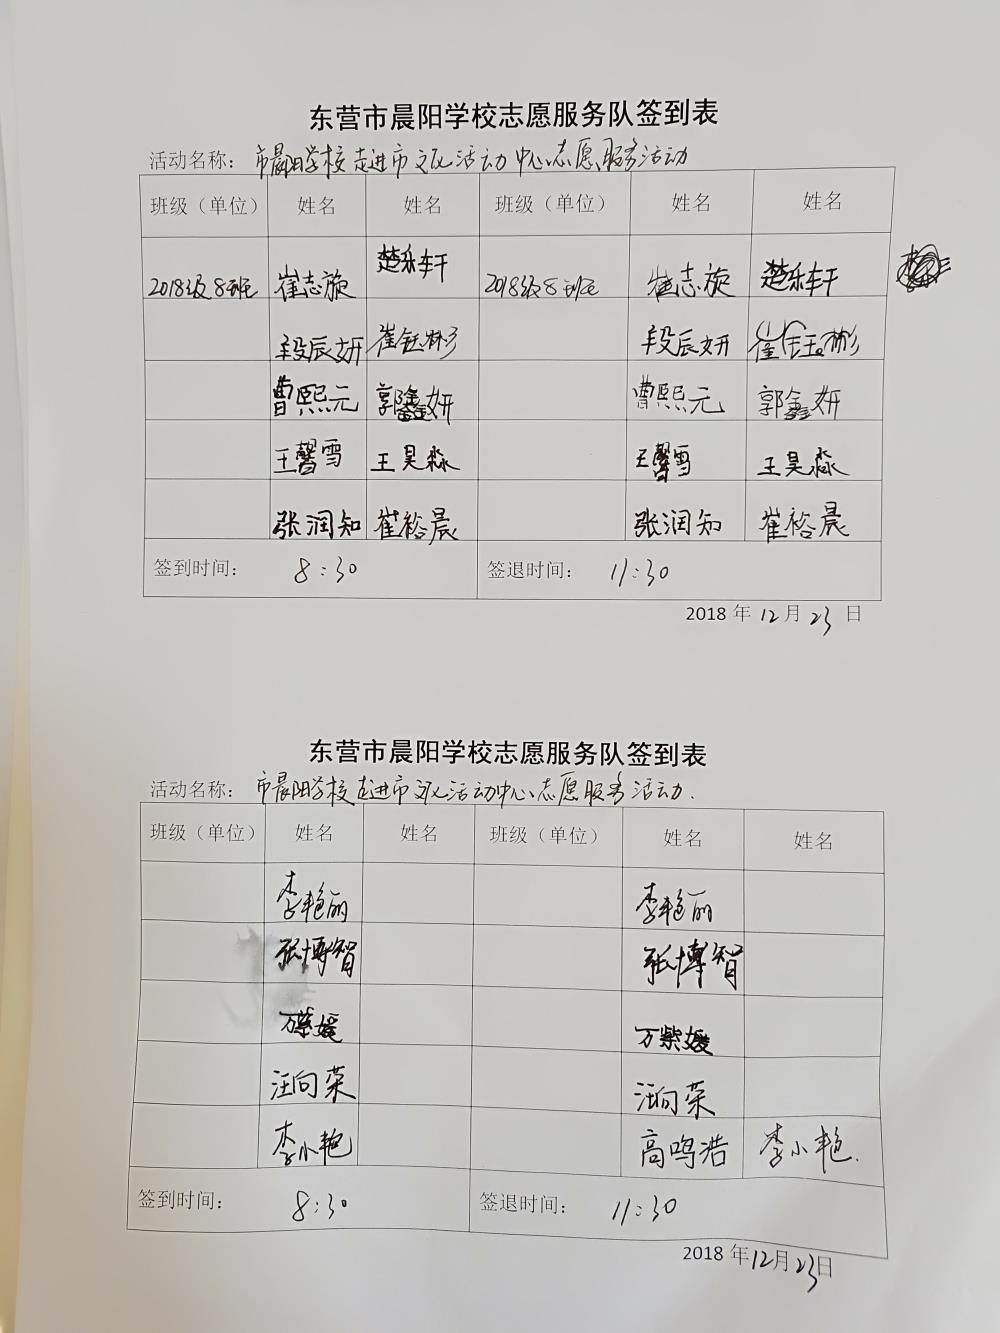 东营市晨阳学校志愿服务队签到表
活动名称： 市晨阳学校走进市文化活动中心志愿服务活动
班级（单位） 姓名 姓名 班级（单位） 姓名 姓名
2018级8班 崔志旋 楚乐轩 2018级8班 崔志旋 楚乐轩
段辰妍 崔钰彬 段辰妍 崔钰彬
曹熙元 郭鑫妍 曹熙元 郭鑫妍
王馨雪 王昊淼 王馨雪 王昊淼
张润知 崔裕晨 张润知 崔裕晨
签到时间： 8:30 签退时间： 11:30
2018 年 12 月 23 日
东营市晨阳学校志愿服务队签到表
活动名称： 市晨阳学校走进市文化活动中心志愿服务活动.
班级（单位） 姓名 姓名 班级（单位） 姓名 姓名
李艳丽 李艳丽
张博智 张博智
万紫媛 万紫媛
汪向荣 汪向荣
李小艳 高鸣浩 李小艳.
签到时间： 8:30 签退时间： 11:30
2018 年 12 月 23 日